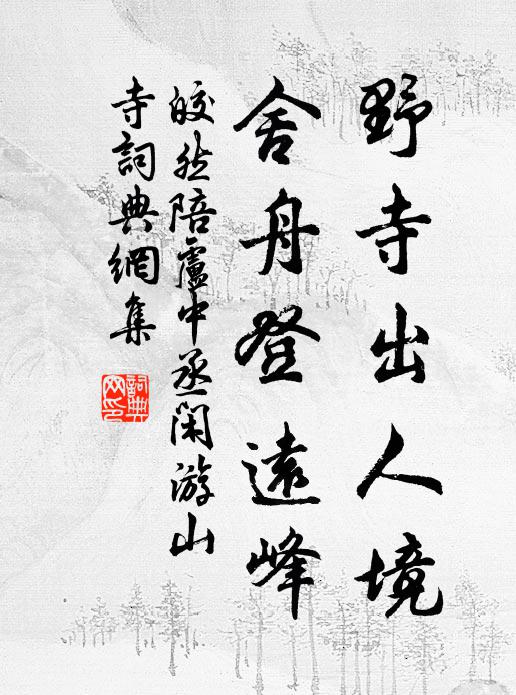 野寺出人境
舍舟登遠峰
皎然陪盧中丞閑游山
寺詞典網集
詞典
网印